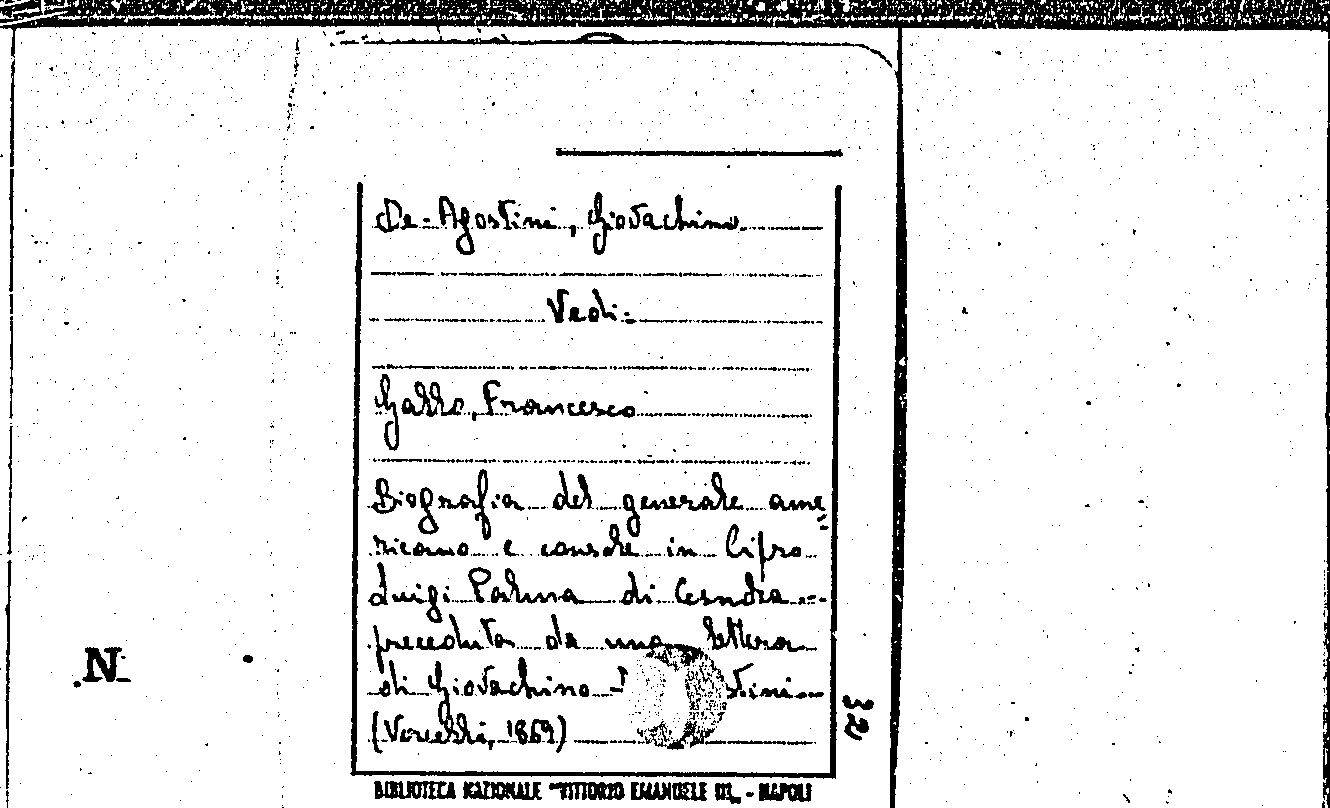 De-Agostini, Giovachino.
Vedi:
Gallo, Francesco
Biografia del generale ame=
ricano e console in Cipro
Luigi Palma di Cesnola ...
preceduta da una lettera
di Giovachino
(Vercelli, 1869)
N
BIBLIOTECA NAZIONALE "VITTORIO EMANUELE III„ - NAPOLI